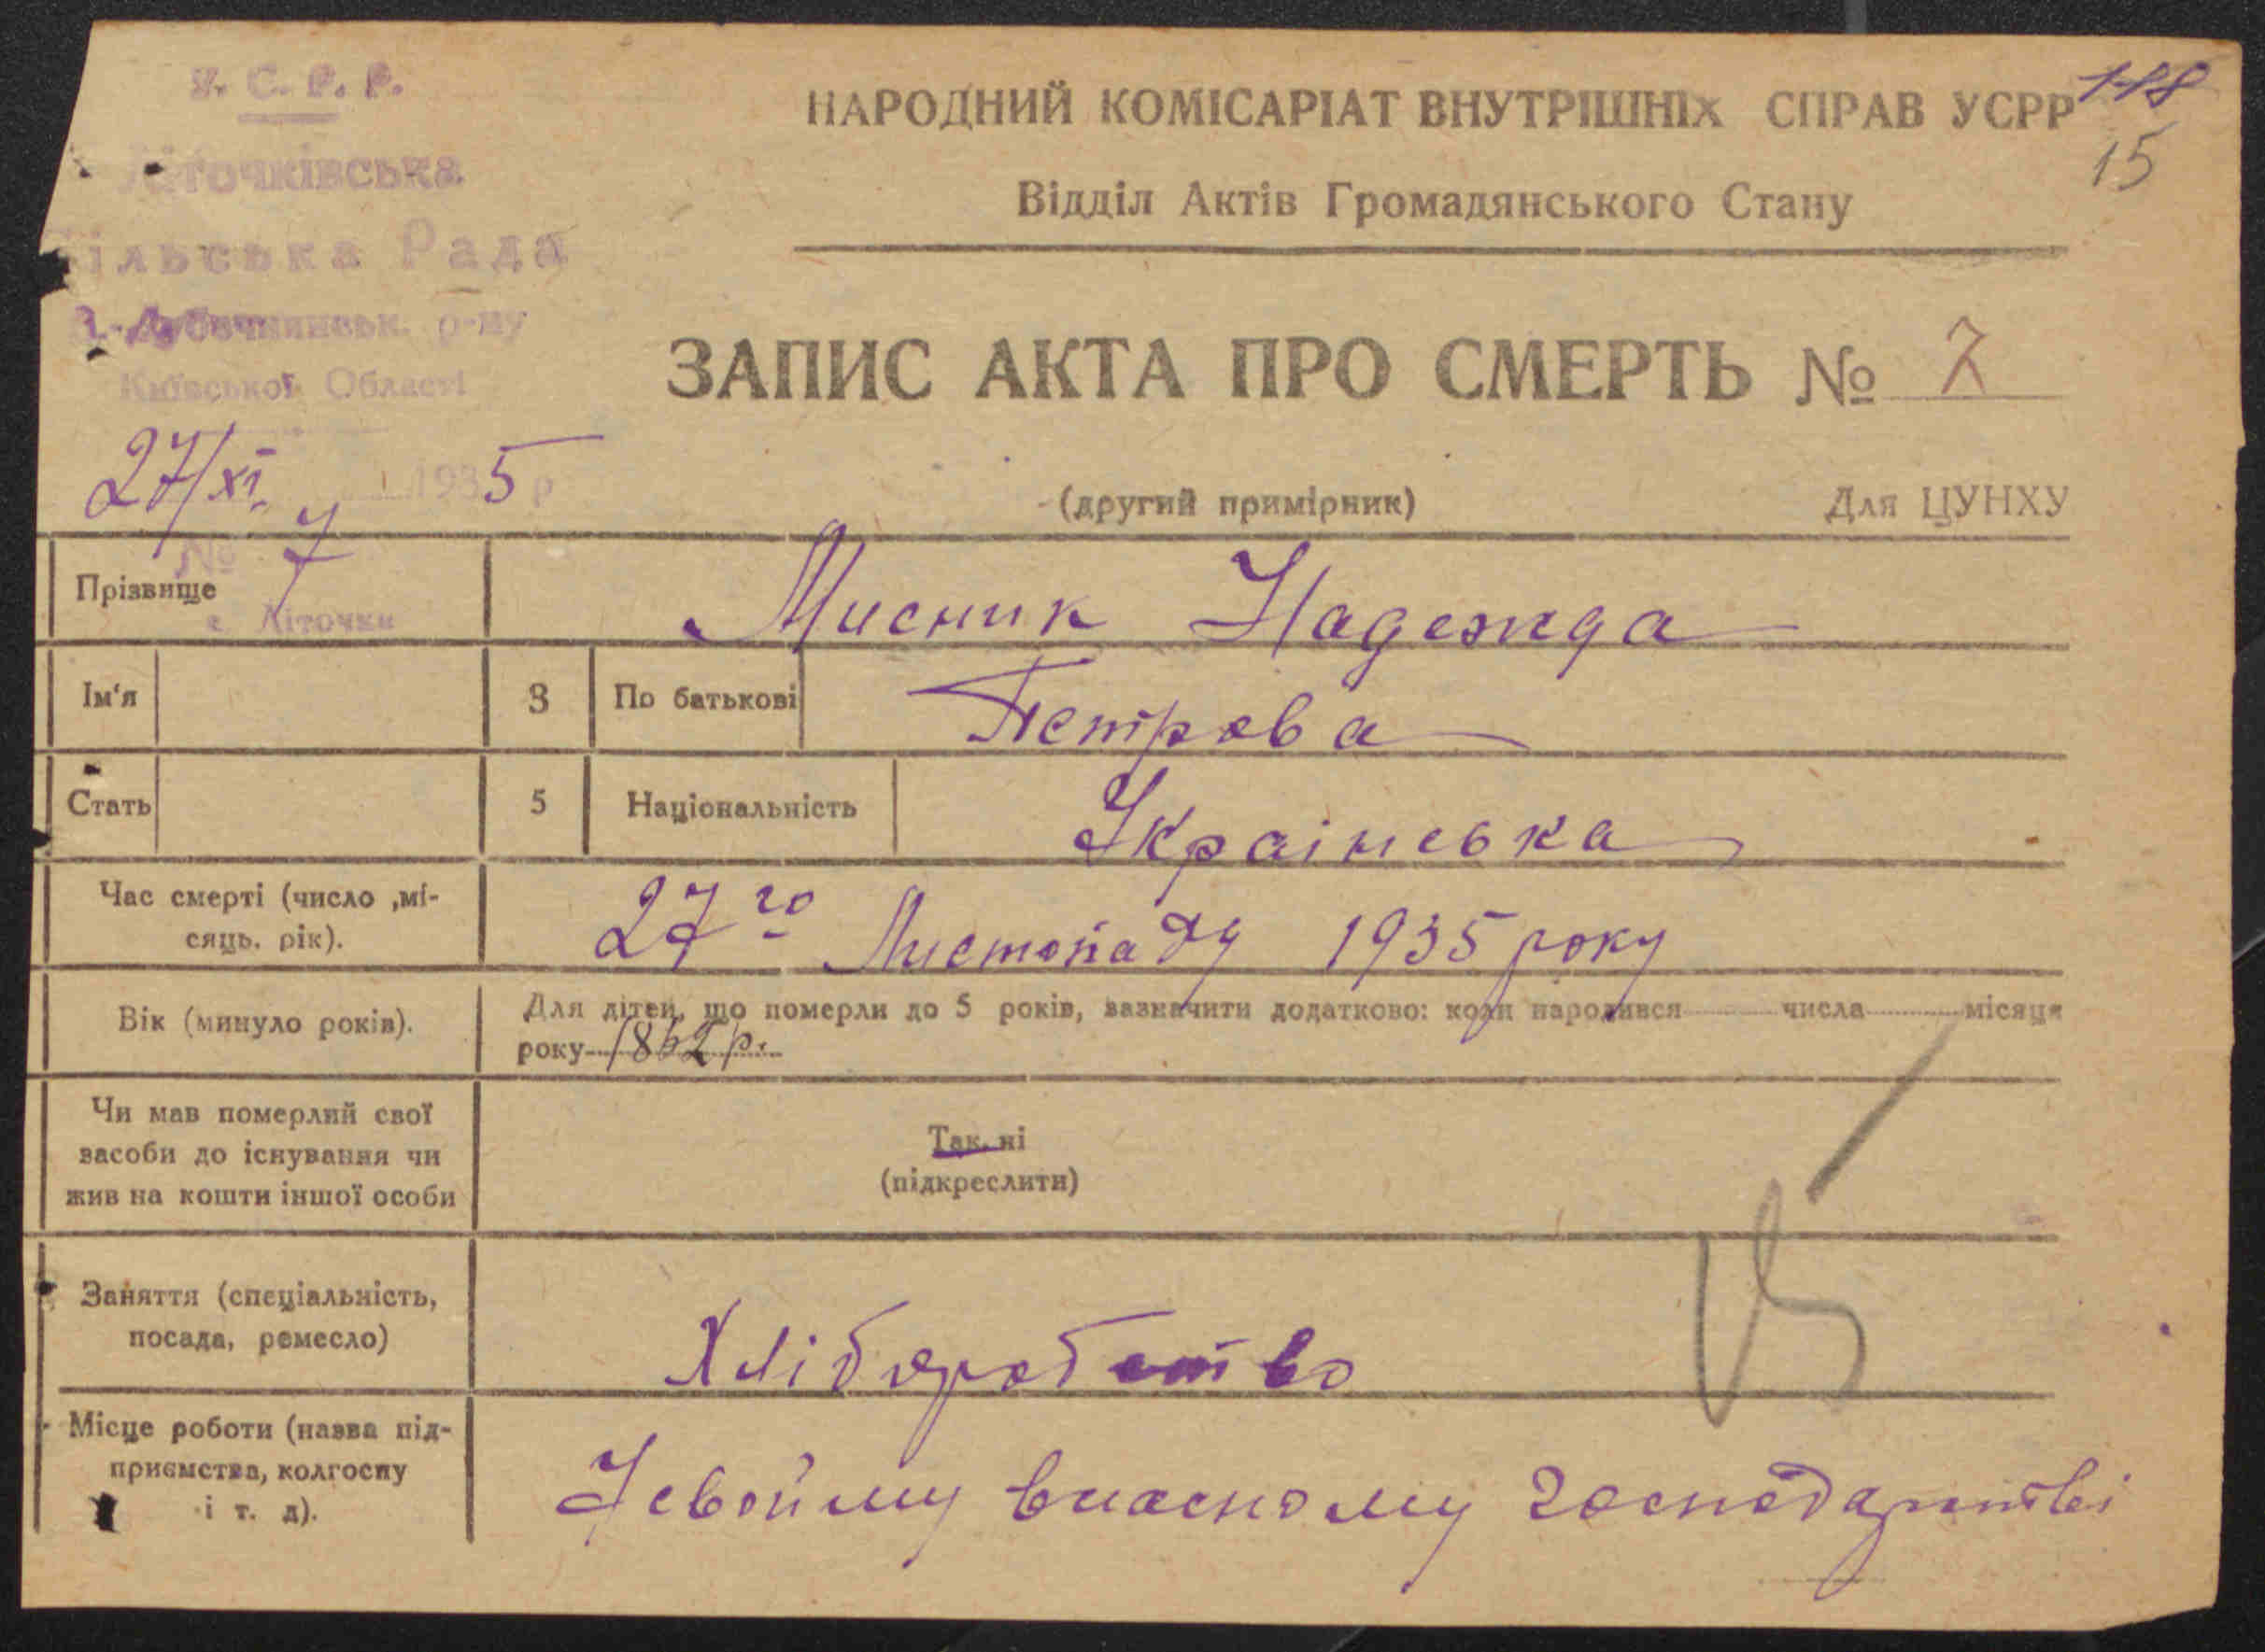 У. С. Р. Р.
Літочківська
Сільська Рада
В.-Дубечанськ. р-ну
Київської Області
27/XI. 1935 р
№ 7
с. Літочки
118
15
НАРОДНИЙ КОМІСАРІАТ ВНУТРІШНІХ СПРАВ УСРР
Відділ Актів Громадянського Стану
ЗАПИС АКТА ПРО СМЕРТЬ № 7
(другий примірник) Для ЦУНХУ
Прізвище Мисник Надежда
Ім'я 3 По батькові Петрова
Стать 5 Національність Украінська
Час смерті (число ,мі-
сяць. рік). 27го Листопаду 1935 року
Вік (минуло років). Для дітей, що померли до 5 років, зазначити додатково: коли народився числа місяця
року 1862 р.
Чи мав померлий свої
засоби до існування чи
жив на кошти іншої особи
Так. ні
(підкреслити)
Заняття (спеціальність,
посада, ремесло) Хліборобство
15
Місце роботи (назва під-
приємства, колгоспу
і т. д). У свойму власному господарстві